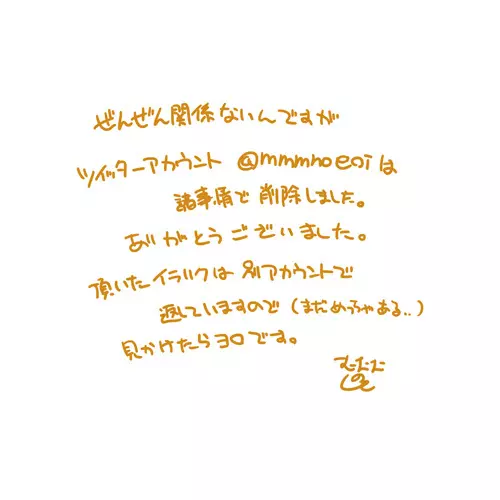 ぜんぜん関係ないんですが
ツイッターアカウント @mmmnoeoiは
諸事情で削除しました。
ありがとうございました。
頂いたイラリクは別アカウントで
返していますので（まだめっちゃある‥）
見かけたらヨロです。